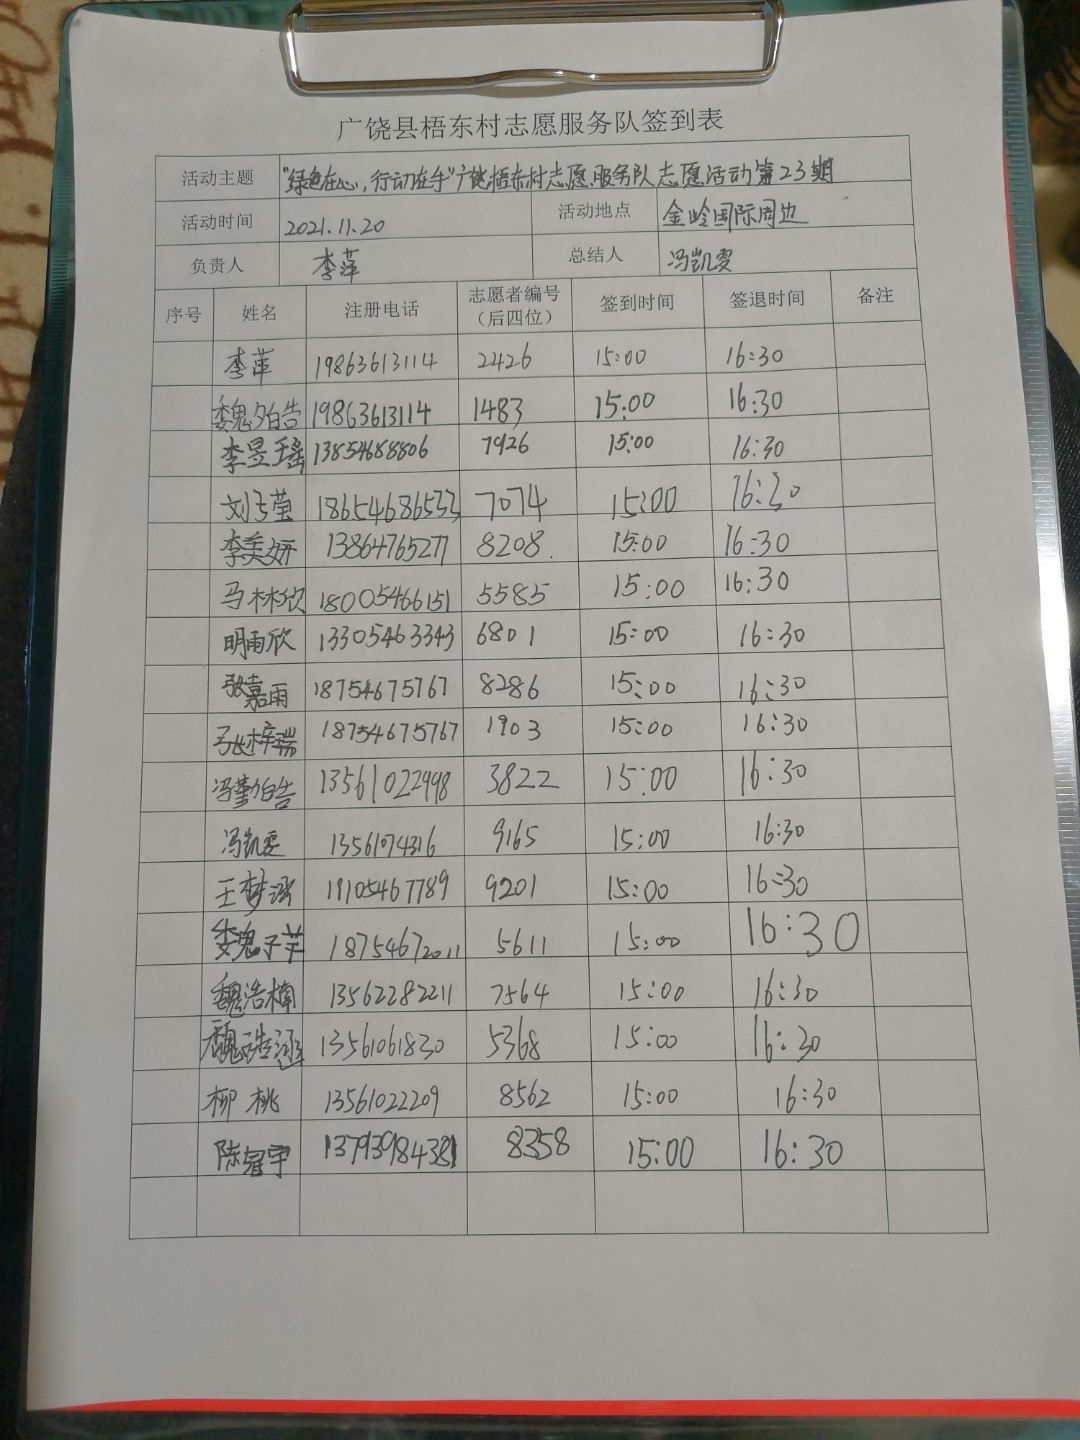 广饶县梧东村志愿服务队签到表
活动主题 "绿色在心,行动在手"广饶梧东村志愿服务队志愿活动第23期
活动时间 2021.11.20 活动地点 金岭国际周边
负责人 李萍 总结人 冯凯雯
序号 姓名 注册电话 志愿者编号（后四位） 签到时间 签退时间 备注
李萍 19863613114 2426 15:00 16:30
魏夕皓 19863613114 1483 15:00 16:30
李昱瑶 13854688806 7926 15:00 16:30
刘 莹 18654686533 7074 15:00 16:30
李美妍 13864765277 8208 15:00 16:30
马林欣 18005466151 5585 15:00 16:30
明雨欣 13305463343 6801 15:00 16:30
张嘉雨 18754675767 8286 15:00 16:30
张梓瑞 18754675767 1903 15:00 16:30
冯 皓 13561022998 3822 15:00 16:30
冯凯雯 13561074316 9165 15:00 16:30
王梦涵 19105467789 9201 15:00 16:30
魏子芊 18754672011 5611 15:00 16:30
魏浩楠 13562282211 7564 15:00 16:30
魏 涵 13561061830 5368 15:00 16:30
柳桃 13561022209 8562 15:00 16:30
陈冠宇 13793984381 8358 15:00 16:30